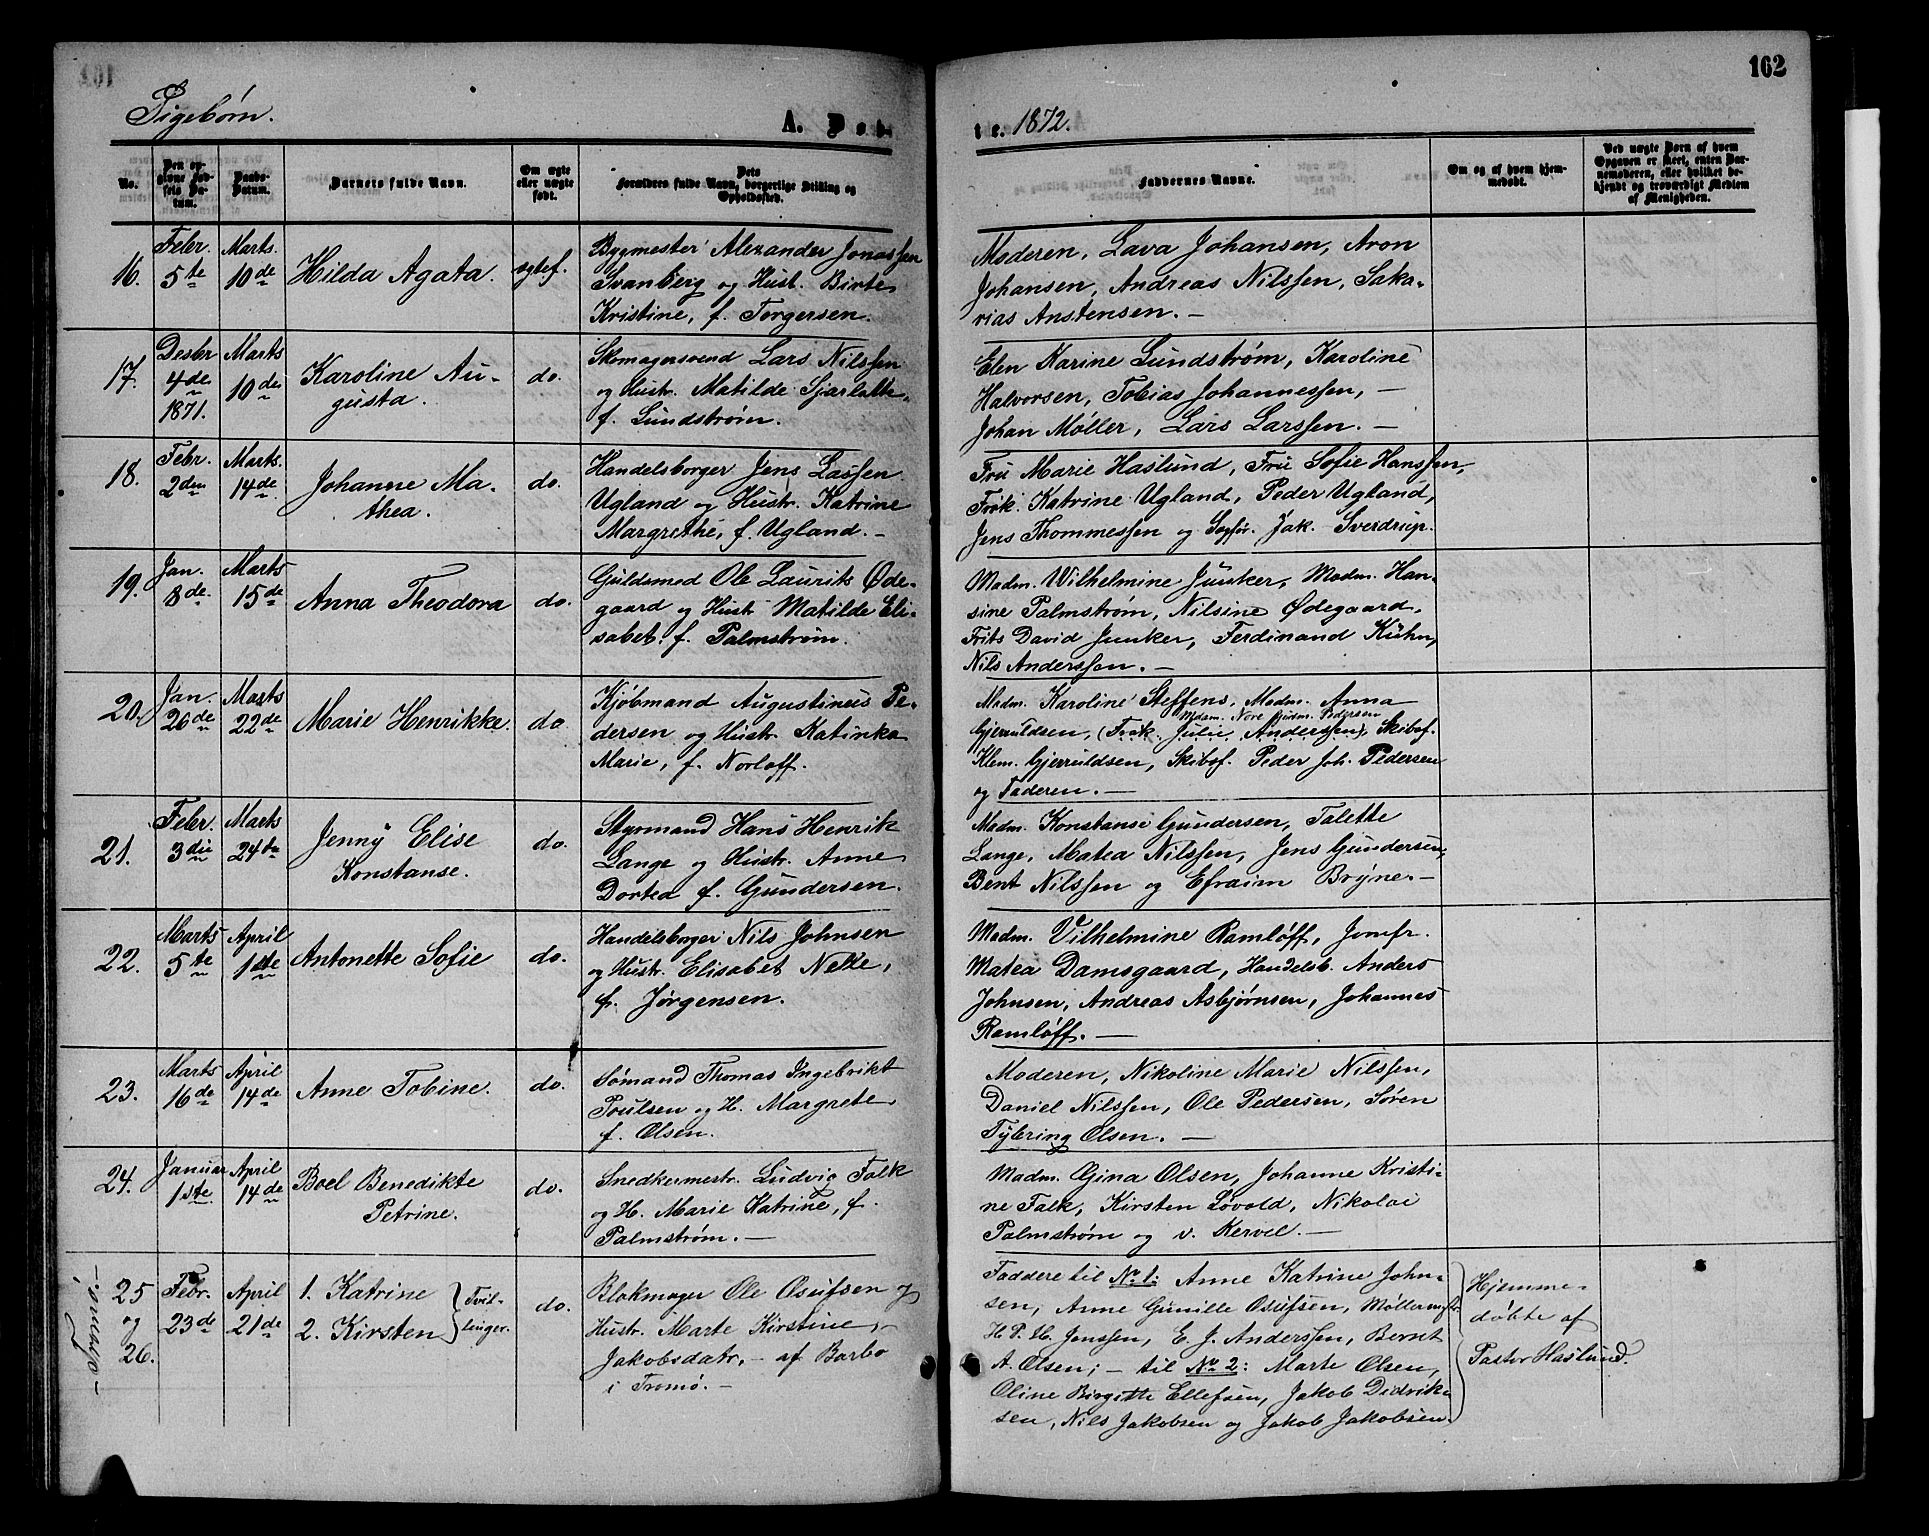 162
Pigebørn.
A. Døb-
te. 1872.
No.
Den op-
givne Fød-
sels Da-
tum.
Daabs-
Datum.
Barnets fulde Navn.
Om ægte
eller uægte
født.
Dets
Forældres fulde Navn, borgerlige Stilling og
Opholdssted.
Faddernes Navne.
Om og af hvem hjem-
medøbt.
Ved uægte Børn af hvem
Opgaven er skeet, enten Bar-
nemoderen, eller hvilket be-
kjendt og troværdigt Medlem
af Menigheden.
16.
Febr.
5te
Marts.
10de
Hilda Agata.
ægtef.
Bygmester Alexander Jonassen
Svanberg og Hust. Birte
Kristine, f. Torgersen.
Moderen, Lava Johansen, Aron
Johansen, Andreas Nilssen, Saka-
rias Anstensen. —
17.
Desbr
4de
1871.
Marts
10de
Karoline Au-
gusta.
do.
Skomagersvend Lars Nilssen
og Hustr. Matilde Sjarlotte,
f. Lundstrøm.
Elen Karine Lundstrøm, Karoline
Halvorsen, Tobias Johannessen, —
Johan Møller, Lars Larssen. —
18.
Febr.
2den
Marts.
14de
Johanne Ma-
thea.
do.
Handelsborger Jens Lassen
Ugland og Hustr. Katrine
Margrethe, f. Ugland. —
Fru Marie Haslund, Fru Sofie Hanssen,
Frøk. Katrine Ugland, Peder Ugland,
Jens Thommessen og Sagfør. Jak. Sverdrup.
19.
Jan.
8de
Marts
15de
Anna Theodora
do.
Guldsmed Ole Laurits Øde-
gaard og Hust. Matilde Eli-
sabet f. Palmstrøm.
Madm. Wilhelmine Junker, Madm. Han-
sine Palmstrøm, Nilsine Ødegaard,
Frits David Junker, Ferdinand Kühn,
Nils Anderssen. —
20.
Jan.
26de
Marts
22de
Marie Henrikke.
do.
Kjøbmand Augustinus Pe-
dersen og Hustr. Katinka
Marie, f. Norloff.
Madm. Karoline Steffens, Madm. Anna
Gjeruldsen, (Frøk. Julie Anderssen), Skibsf.
Klem. Gjerruldsen, Skibsf. Peder Joh. Pedersen
og Faderen. —
21.
Febr.
3die
Marts
24de
Jenny Elise
Konstanse.
do.
Styrmand Hans Henrik
Lange og Hustr. Anne
Dortea f. Gundersen.
Madm. Konstanse Gundersen, Talette
Lange, Matea Nilssen, Jens Gundersen,
Bent Nilssen og Efraim Bryne. —
22.
Marts
5te
April
1ste
Antonette Sofie
do.
Handelsborger Nils Johnsen
og Hustr. Elisabet Nelle,
f. Jørgensen.
Madm. Vilhelmine Ramløff, Jomfr.
Matea Damsgaard, Handelsb. Anders
Johnsen, Andreas Asbjørnsen, Johannes
Ramløff. —
23.
Marts
16de
April
14de
Anne Tobine.
do.
Sømand Thomas Ingebrikt
Poulsen og H. Margrete
f. Olsen.
Moderen, Nikoline Marie Nilssen,
Daniel Nilssen, Ole Pedersen, Søren
Tybring Olsen. —
24.
Januar
1ste
April
14de
Boel Benedikte
Petrine.
do.
Snedkermestr. Ludvig Falk
og H. Marie Katrine, f.
Palmstrøm. —
Madm. Gina Olsen, Johanne Kristi-
ne Falk, Kirsten Løvold, Nikolai
Palmstrøm og v. Kervel. —
— Tromø. —
25
og
26.
Febr.
23de
April
21de
1. Katrine
2. Kirsten
Tvil-
linger.
do.
Blokmager Ole Osufsen og
Hustr. Marte Kirstine,
Jakobsdatr, — af Barbo
i Tromø. —
Faddere til No 1: Anne Katrine John-
sen, Anne Gunille Osufsen, Møllermestr.
H. P. H. Jenssen, E. J. Anderssen, Bernt
A. Olsen; — til No 2: Marte Olsen,
Oline Birgitte Ellefsen, Jakob Didrik-
sen, Nils Jakobsen og Jakob Jakobsen.
Hjemme-
døbte af
Pastor Haslund.